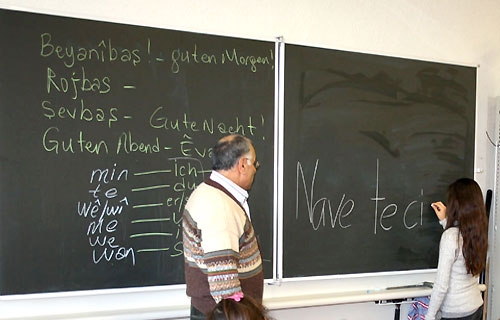 Beyanîbaş! - guten Morgen!
Rojbas -
Şevbaş - Gute Nacht!
Guten Abend - Êva
min — ich
te — du
wê/wî — er/
me —
we — i
wan — s
Nave te ci